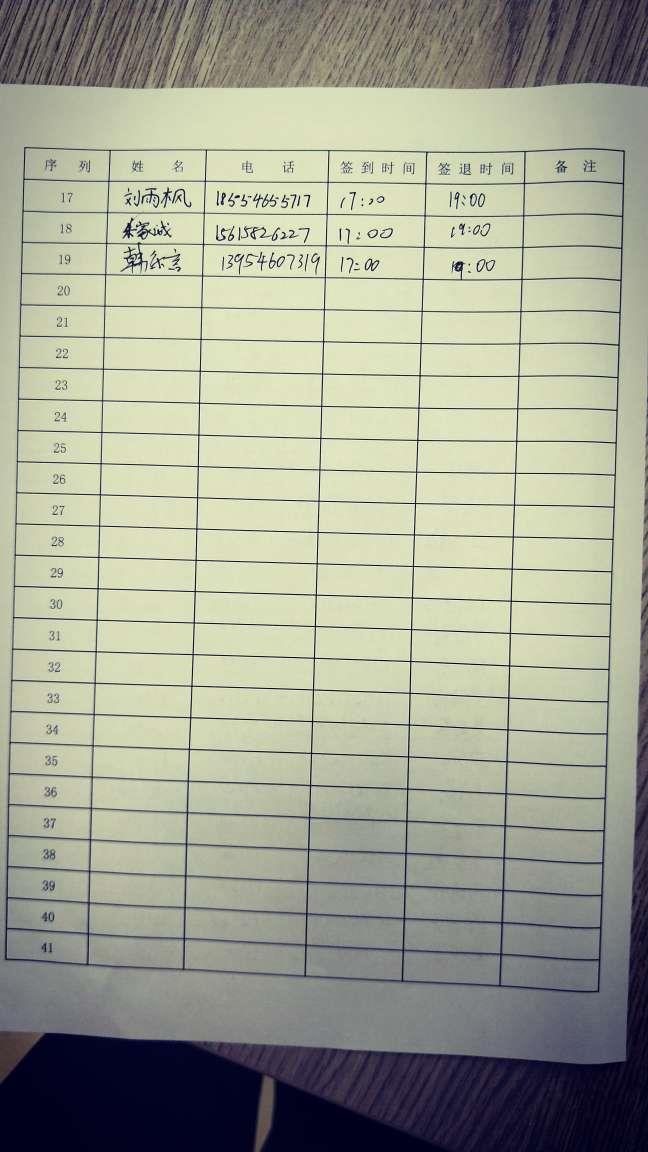 序 列 姓 名 电 话 签 到 时 间 签 退 时 间 备 注
17 刘雨枫 18554655717 17:00 19:00
18 家诚 15615826227 17:00 19:00
19 韩乐言 13954607319 17:00 19:00
20
21
22
23
24
25
26
27
28
29
30
31
32
33
34
35
36
37
38
39
40
41